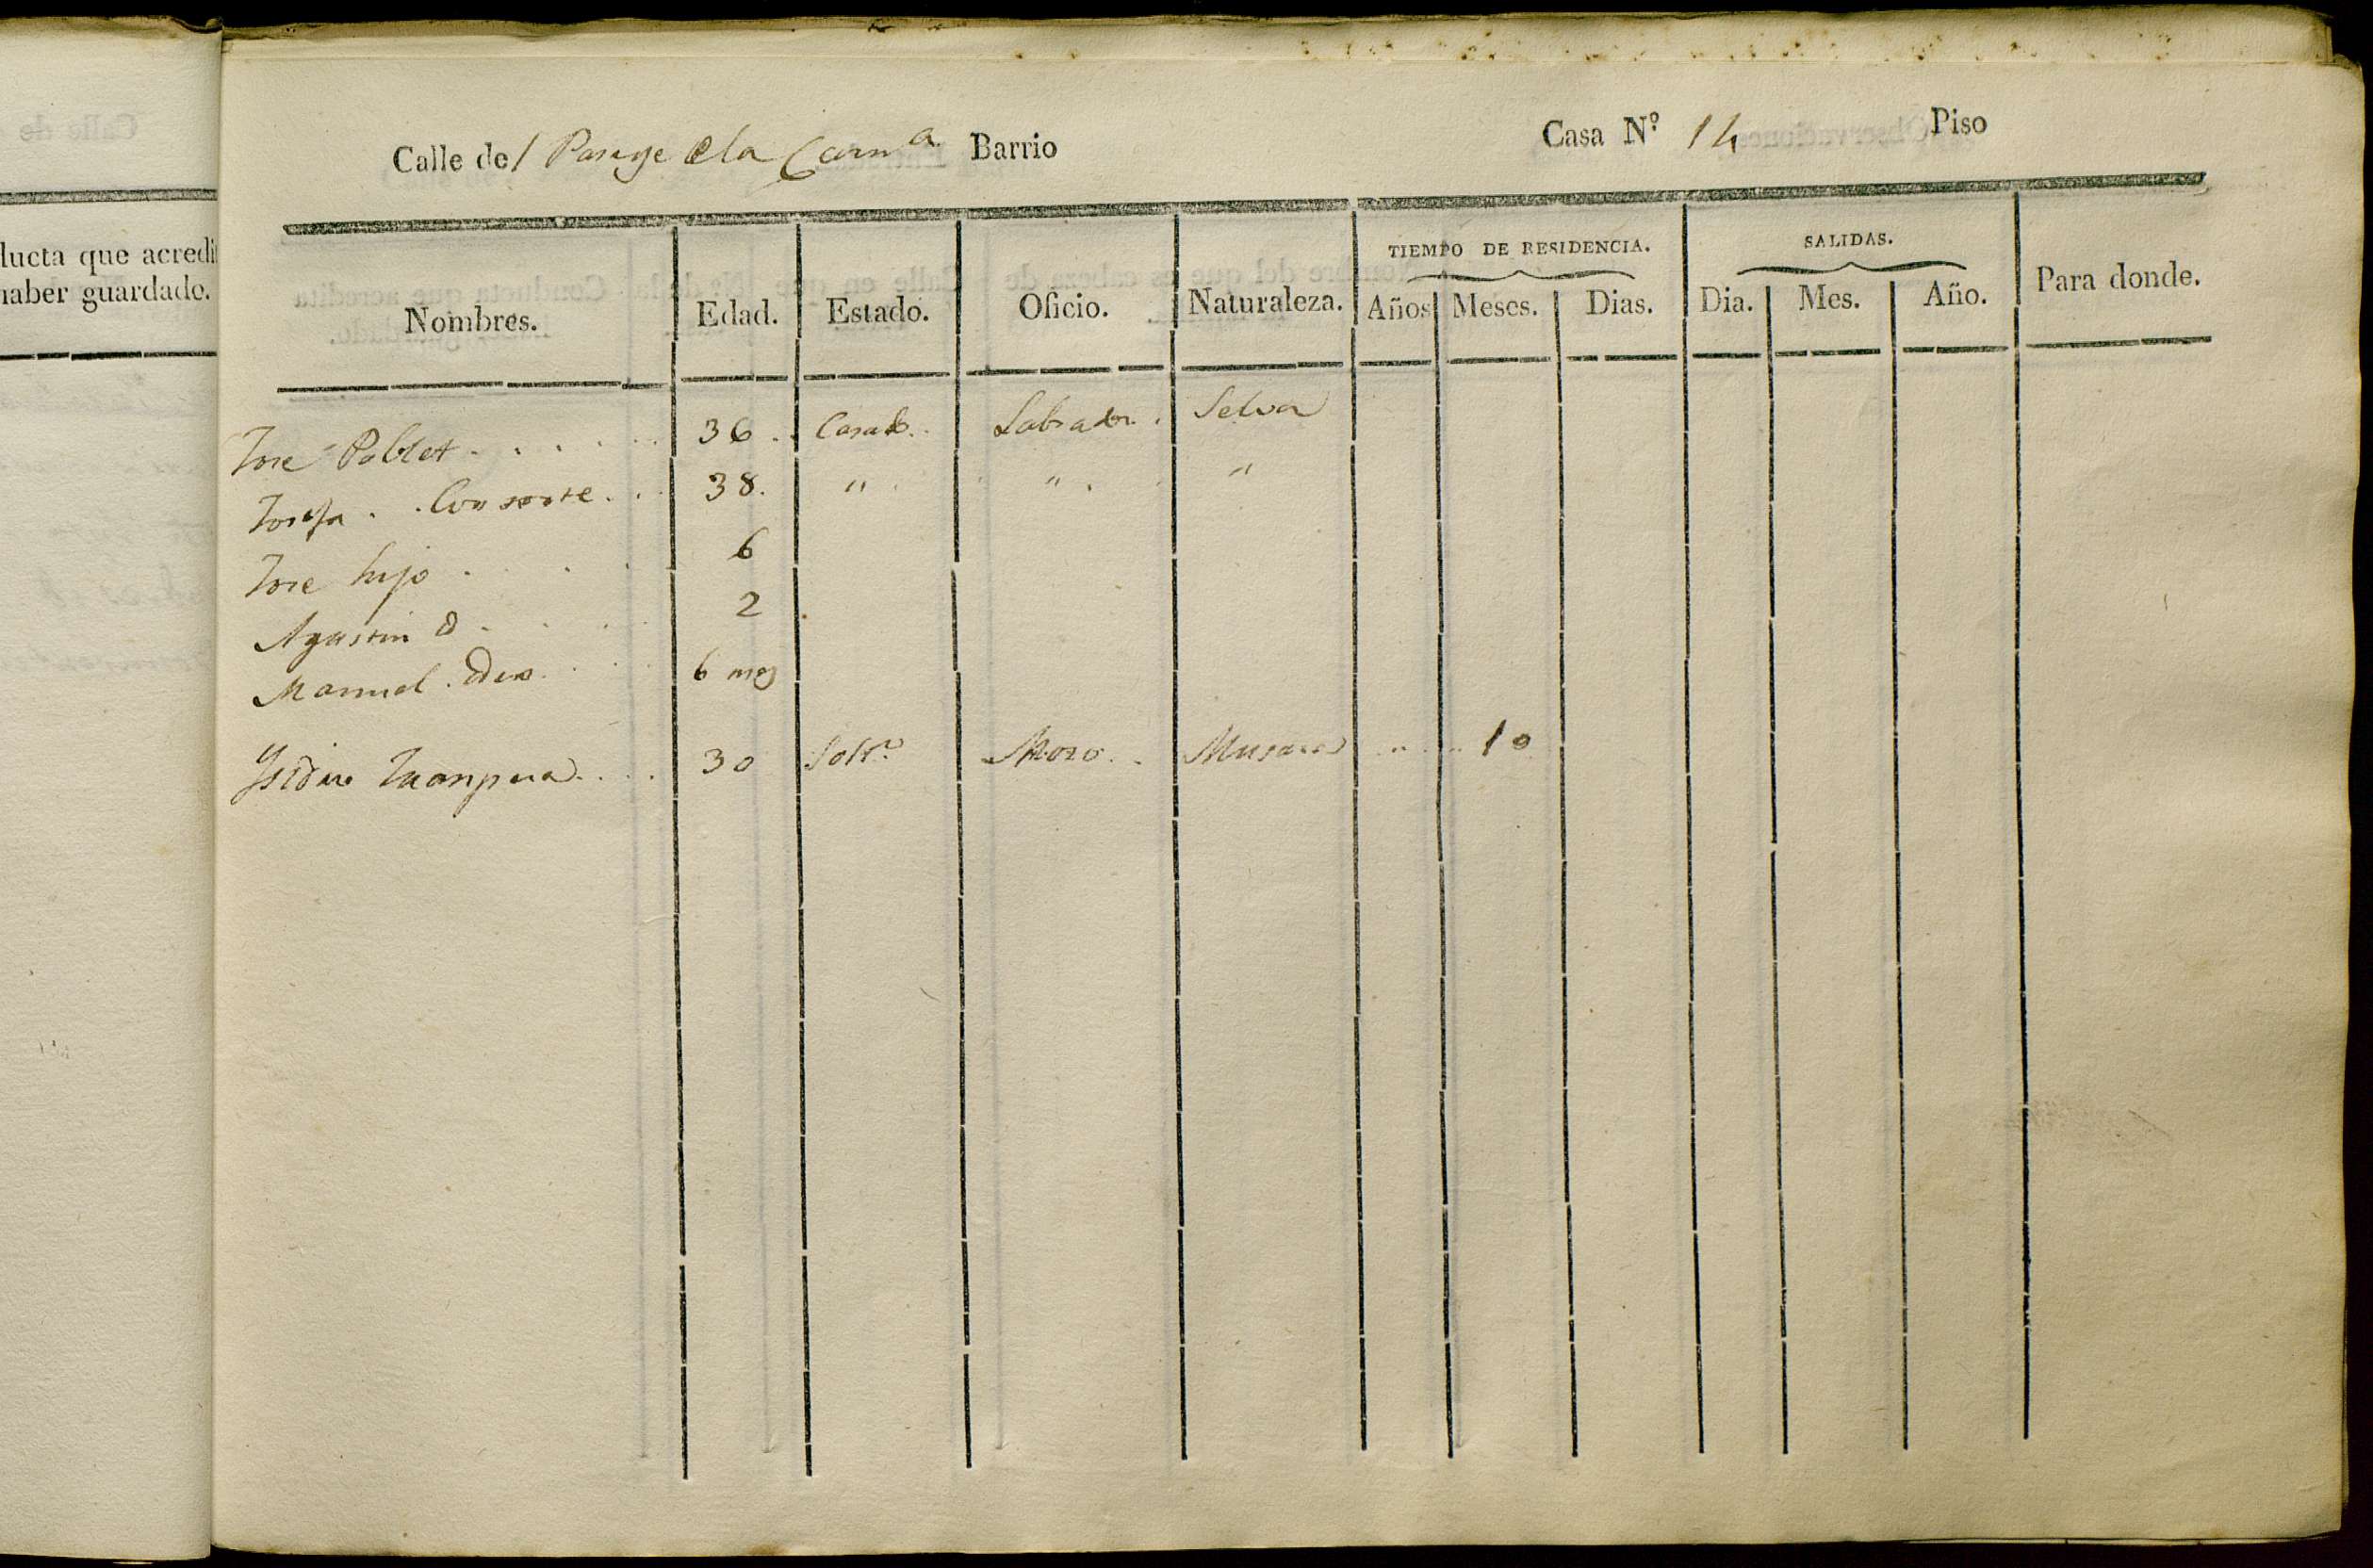 Calle de
ducta que acredi
haber guardado.
Calle del Parage de la Barrio Casa N.º 14 Piso
TIEMPO DE RESIDENCIA. SALIDAS.
Nombres. Edad. Estado. Oficio. Naturaleza. Años Meses. Dias. Dia. Mes. Año. Para donde.
Jose Poblet 36 Casado Labrador Selva
Josefa Consorte 38. " " "
Jose hijo 6
Agustin 2
Manuel 6 mes
Ysidro 30 Soltº Mozo Musara 10